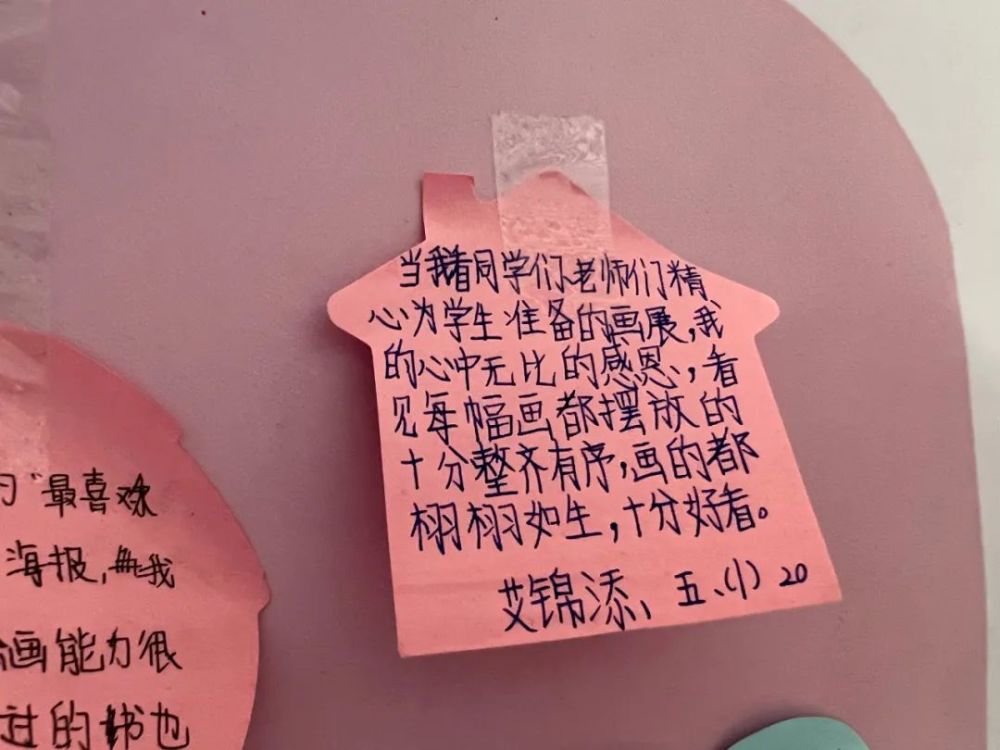 当我看同学们、老师们精
心为学生准备的画展,我
的心中无比的感恩,看
见每幅画都摆放的
十分整齐有序,画的都
栩栩如生,十分好看。
艾锦添、五、(1) 20
"最喜欢
海报,我
画能力很
过的书也